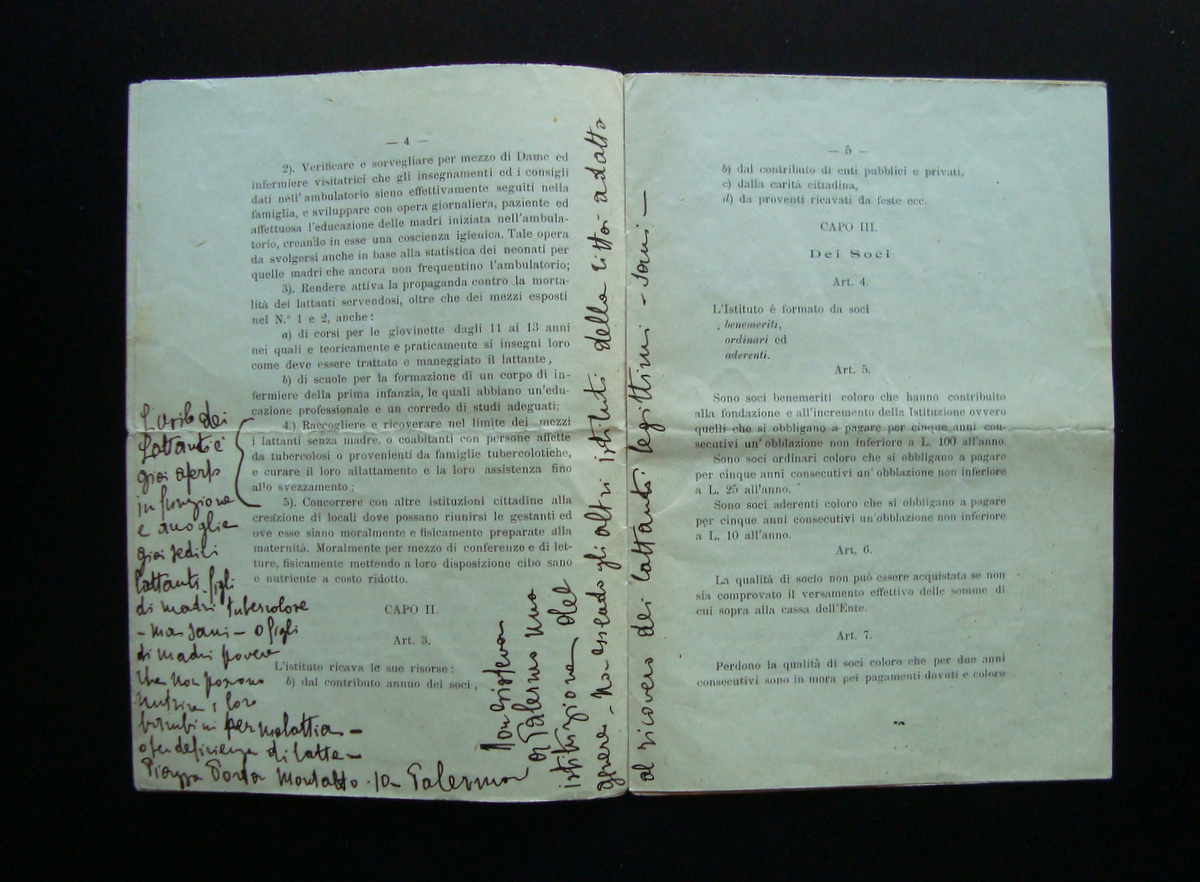 — 4 —
2). Verificare e sorvegliare per mezzo di Dame ed
infermiere visitatrici che gli insegnamenti ed i consigli
dati nell'ambulatorio sieno effettivamente seguiti nella
famiglia, e sviluppare con opera giornaliera, paziente ed
affettuosa l'educazione delle madri iniziata nell'ambula-
torio, creando in esse una coscienza igienica. Tale opera
da svolgersi anche in base alla statistica dei neonati per
quelle madri che ancora non frequentino l'ambulatorio;
3). Rendere attiva la propaganda contro la morta-
lità dei lattanti servendosi, oltre che dei mezzi esposti
nel N.° 1 e 2, anche:
a) di corsi per le giovinette dagli 11 ai 13 anni
nei quali e teoricamente e praticamente si insegni loro
come deve essere trattato e maneggiato il lattante,
b) di scuole per la formazione di un corpo di in-
fermiere della prima infanzia, le quali abbiano un'edu-
cazione professionale e un corredo di studi adeguati;
4.) Raccogliere e ricoverare nel limite dei mezzi
i lattanti senza madre, o coabitanti con persone affette
da tubercolosi o provenienti da famiglie tubercolotiche,
e curare il loro allattamento e la loro assistenza fino
allo svezzamento;
5). Concorrere con altre istituzioni cittadine alla
creazione di locali dove possano riunirsi le gestanti ed
ove esse siano moralmente e fisicamente preparate alla
maternità. Moralmente per mezzo di conferenze e di let-
ture, fisicamente mettendo a loro disposizione cibo sano
e nutriente a costo ridotto.
CAPO II.
Art. 3.
L'istituto ricava le sue risorse:
b) dal contributo annuo dei soci,
dei
Lattanti è
già aperto
in funzione
e accoglie
già sedici
lattanti figli
di madri tubercolose
- ma sani - o figli
di madri povere
che non possono
nutrire i loro
bambini per malattia -
o per deficienza di latte -
Piazza Porta Montalto 10a Palermo
Non esisteva
a Palermo una
istituzione del
genere - non essendo gli altri istituti della città adatto
al ricovero dei lattanti legittimi - sani -
— 5 —
b) dal contributo di enti pubblici e privati,
c) dalla carità cittadina,
d) da proventi ricavati da feste ecc.
CAPO III.
Dei Soci
Art. 4.
L'Istituto è formato da soci
benemeriti,
ordinari ed
aderenti.
Art. 5.
Sono soci benemeriti coloro che hanno contribuito
alla fondazione e all'incremento della Istituzione ovvero
quelli che si obbligano a pagare per cinque anni con-
secutivi un'obblazione non inferiore a L. 100 all'anno.
Sono soci ordinari coloro che si obbligano a pagare
per cinque anni consecutivi un'obblazione non inferiore
a L. 25 all'anno.
Sono soci aderenti coloro che si obbligano a pagare
per cinque anni consecutivi un'obblazione non inferiore
a L. 10 all'anno.
Art. 6.
La qualità di socio non può essere acquistata se non
sia comprovato il versamento effettivo delle somme di
cui sopra alla cassa dell'Ente.
Art. 7.
Perdono la qualità di soci coloro che per due anni
consecutivi sono in mora pei pagamenti dovuti e coloro